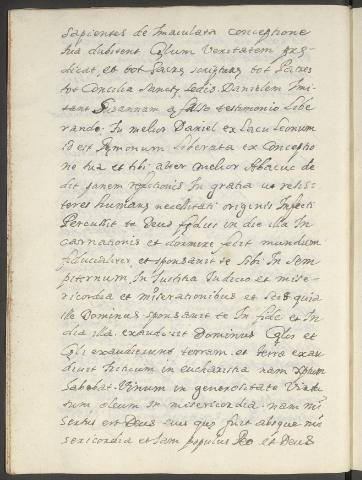 sapientes de Imaculata conceptione
sua dubitent Cęlum Veritatem prę-
dicat, et tot sacrę scripturę tot Patres
tot Concilia sanctę sedis. Danielem Imi-
tant Susannam a falso testimonio libe
rando. Tu melior Daniel ex lacu leonum
id est Demonum liberata ex Conceptio
ne tua et tibi alter melior Abacuc de
dit panem refectionis In gratia ut resis-
teres humanę necessitati originis Infecti
Percussit te Deus fędus in die illa In
carnationis et dormire fecit mundum
fiducialiter, et sponsavit te sibi In sem
piternum, In Iustitia Iudicio et mise-
ricordia et miserationibus et scies quia
ille Dominus sponsavit te In fide et In
dia illa. exaudiet Dominus Cęlos et
Cęli exaudierunt terram. et terra exau
divit triticum in eucharistia nam
Vinum in generositate
oleum In misericordia. nam mi
est Deus eius quo fuit absque mi
sericordia et iam populus Deo et Deus